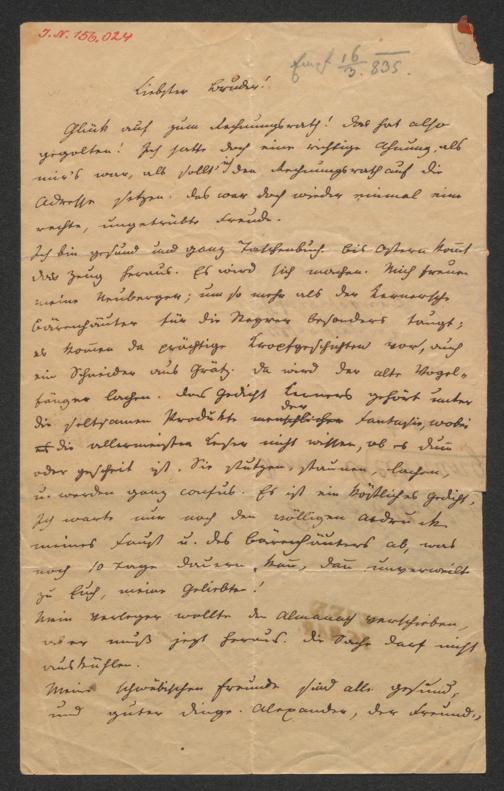 I. N. 156,024
Empf 16/3. 835.
Liebster Bruder!
Glück auf zum Rechnungsrath! Das hat also
gegolten! Ich hatte doch eine richtige Ahnung, als
mir's war, als sollt' ich den Rechnungsrath auf die
Adresse setzen. Das war doch wieder einmal eine
rechte, ungetrübte Freude.
Ich bin gesund und ganz Taschenbuch. Bis Ostern kömt
das Zeug heraus. Es wird sich machen. Mich freuen
meine Neuberger; um so mehr als der Kernersche
Bärenhäuter für die besonders taugt;
es komen da prächtige Kropfgeschichten vor, auch
ein Schneider aus Grätz. Da wird der alte Vogel-
fänger lachen. Das Gedicht Kerners gehört unter
die seltsamen Produkte menschlicher der Fantasie, wobei
es die allermeisten Leser nicht wissen, ob es dum
oder gescheit ist. Sie stutzen, staunen, lachen,
u. werden ganz confus. Es ist ein köstliches Gedicht.
Ich warte nur noch den völligen Abdruck
meines Faust u. des Bärenhäuters ab, was
noch 10 Tage dauern kan, dan unverweilt
zu Euch, meine Geliebten!
Mein Verleger wollte den Almanach verschieben,
aber muß jezt heraus. Die Sache darf nicht
auskühlen.
Meine schwäbischen Freunde sind alle gesund,
und guter Dinge. Alexander, der Freund-